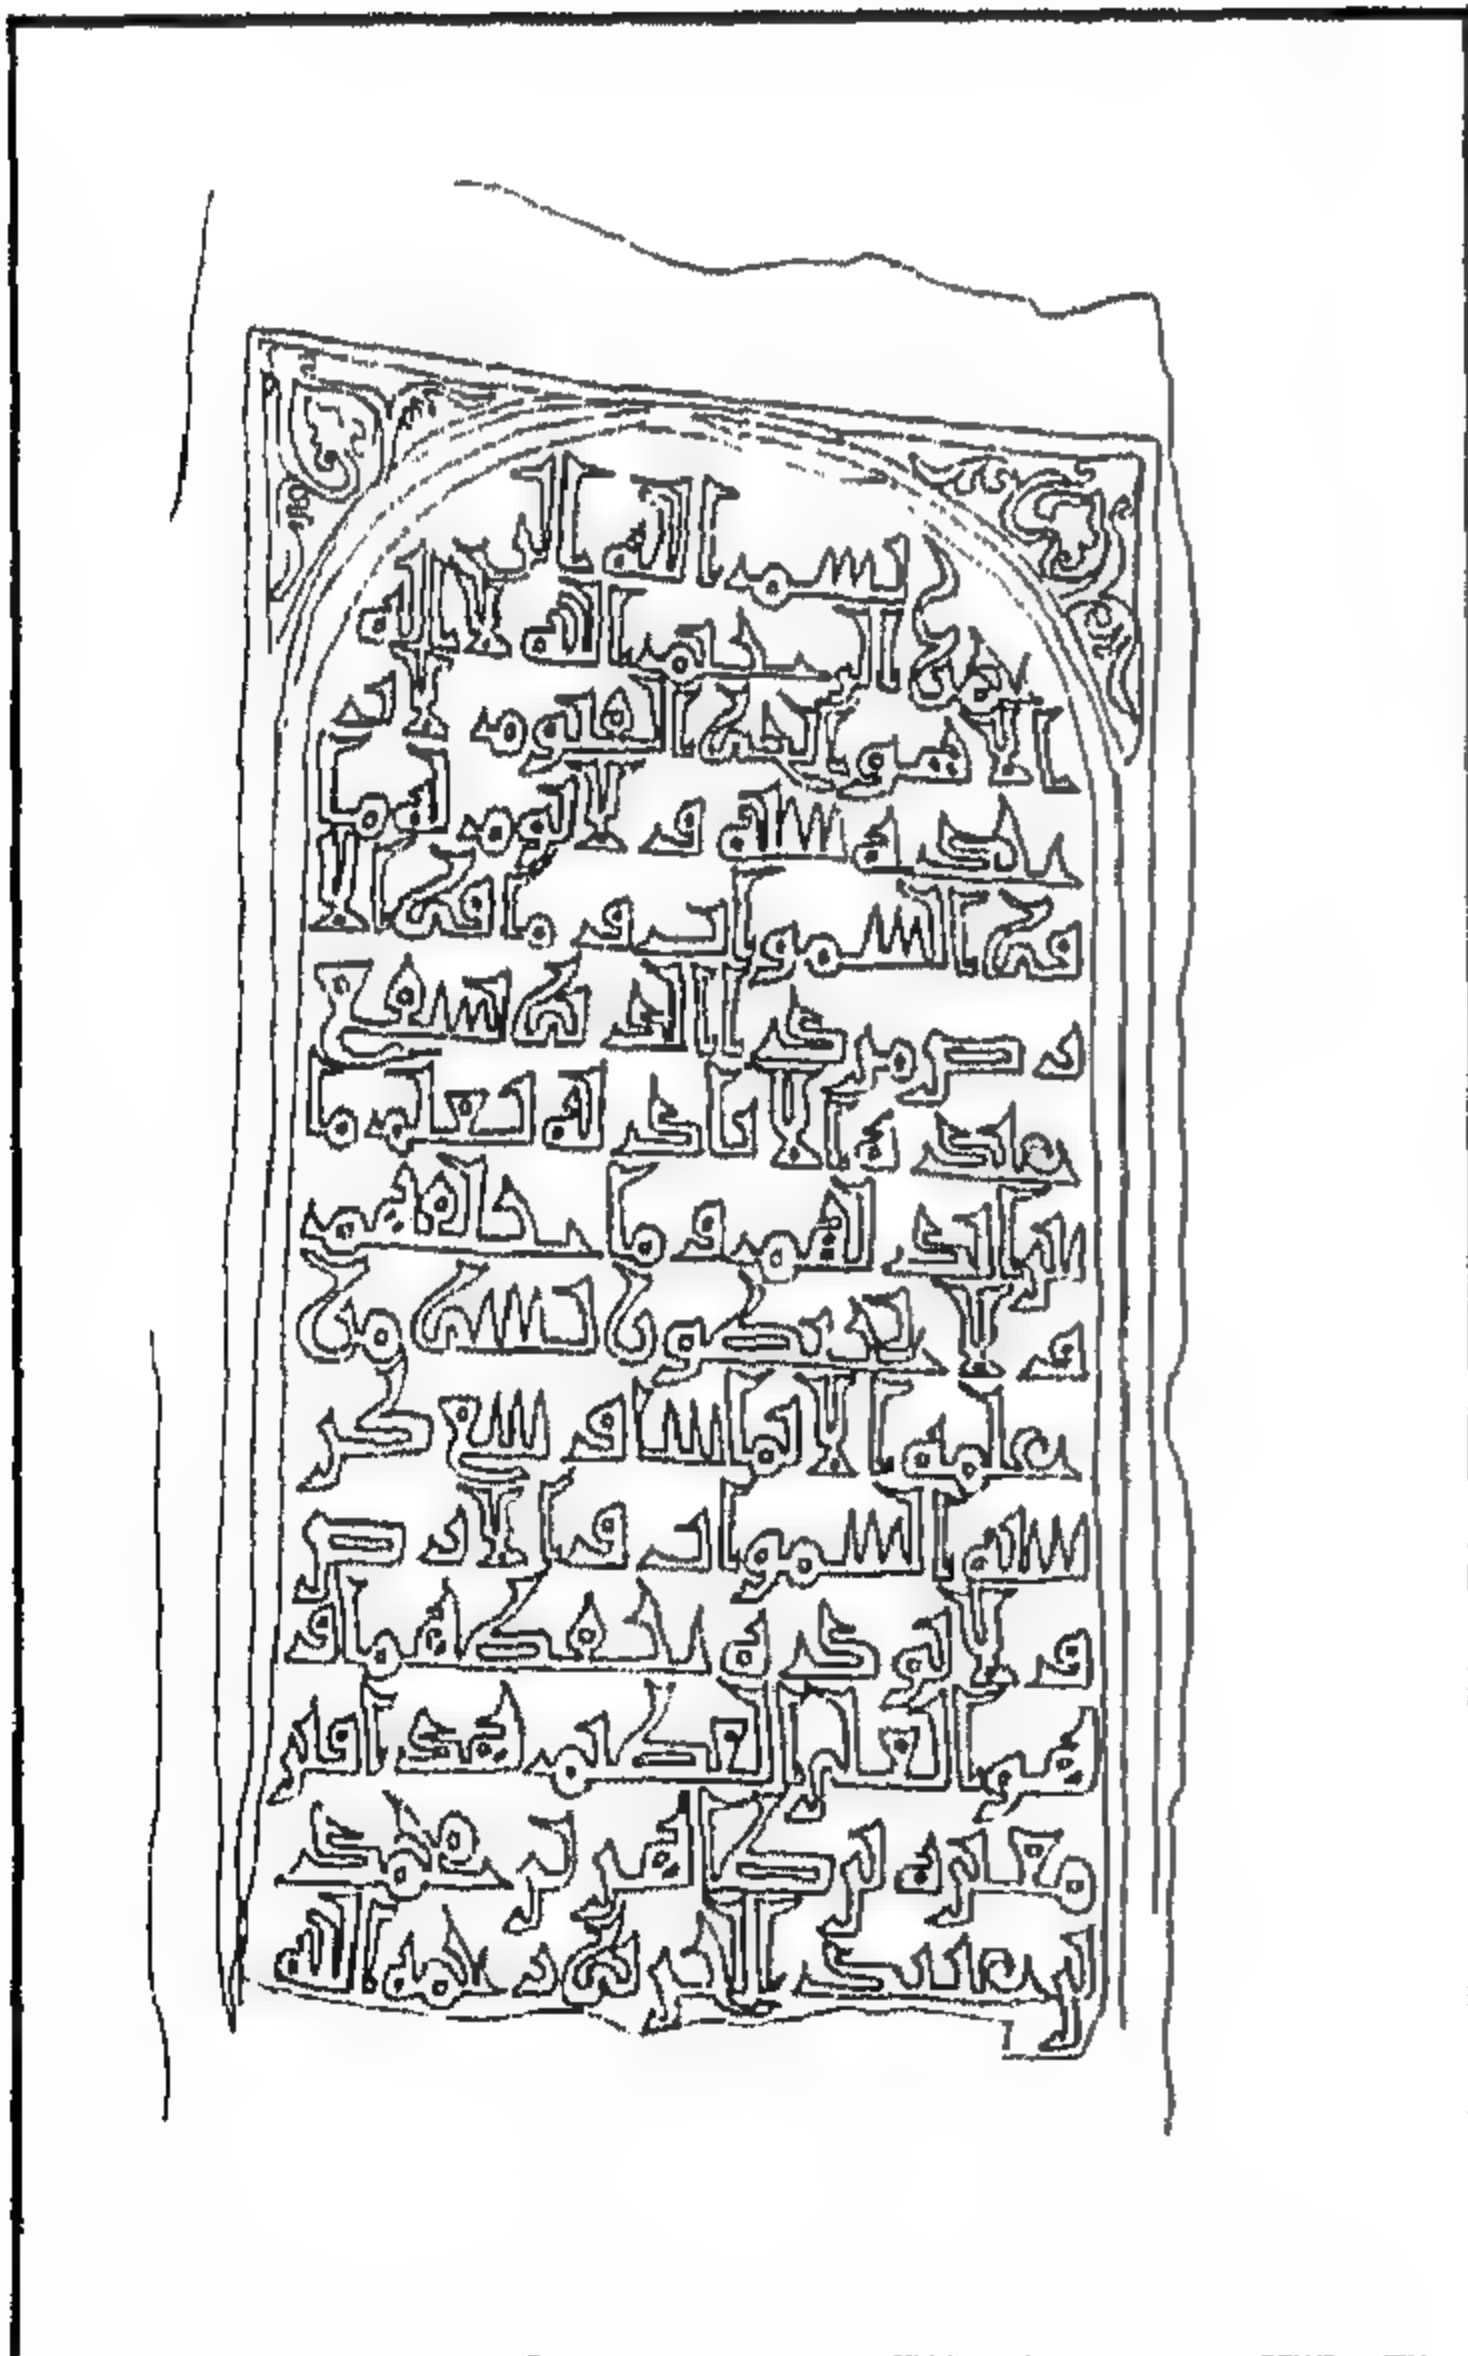 بسم الله الر
حمن الرحيم الله لا اله
الا هو الحي القيوم لا تا
خذه سنه ولا نوم له ما
في السموات وما في الا
رض من ذا الذي يشفع
عنده الا باذنه يعلم ما
بين ايديهم وما خلفهم
ولا يحيطون بشي من
علمه الا بما شا وسع كر
سيه السموات والارض
ولا يوده حفظهما و
هو العلي العظيم هذا قبر
رحمه الله